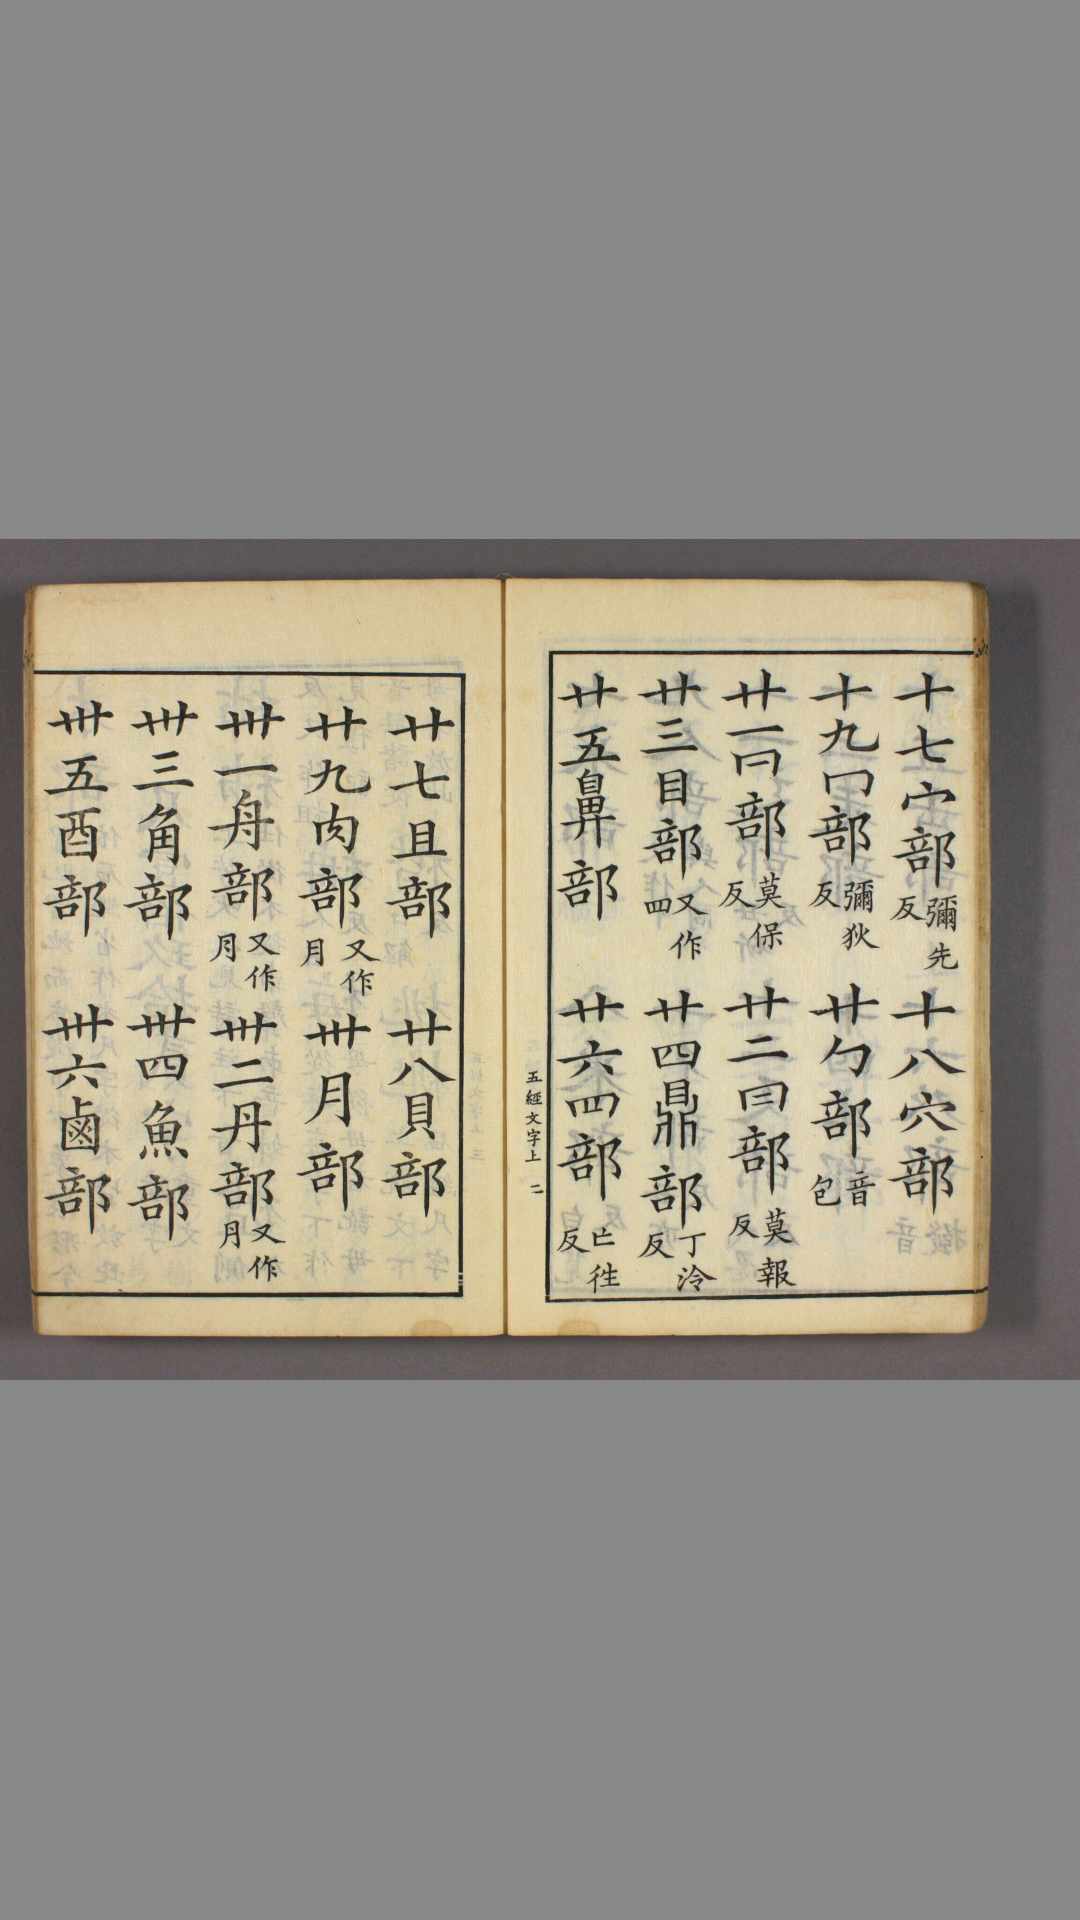 十七宀部彌先反十八穴部
十九冂部彌狄反廿勹部音包
廿一冃部莫保反廿二曰部莫報反
廿三目部又作罒廿四鼎部丁泠反
廿五鼻部廿六罒部亡徃反
五經文字上 二
廿七且部廿八貝部
廿九肉部又作月丗月部
丗一舟部又作月丗二丹部又作月
丗三角部丗四魚部
丗五酉部丗六鹵部